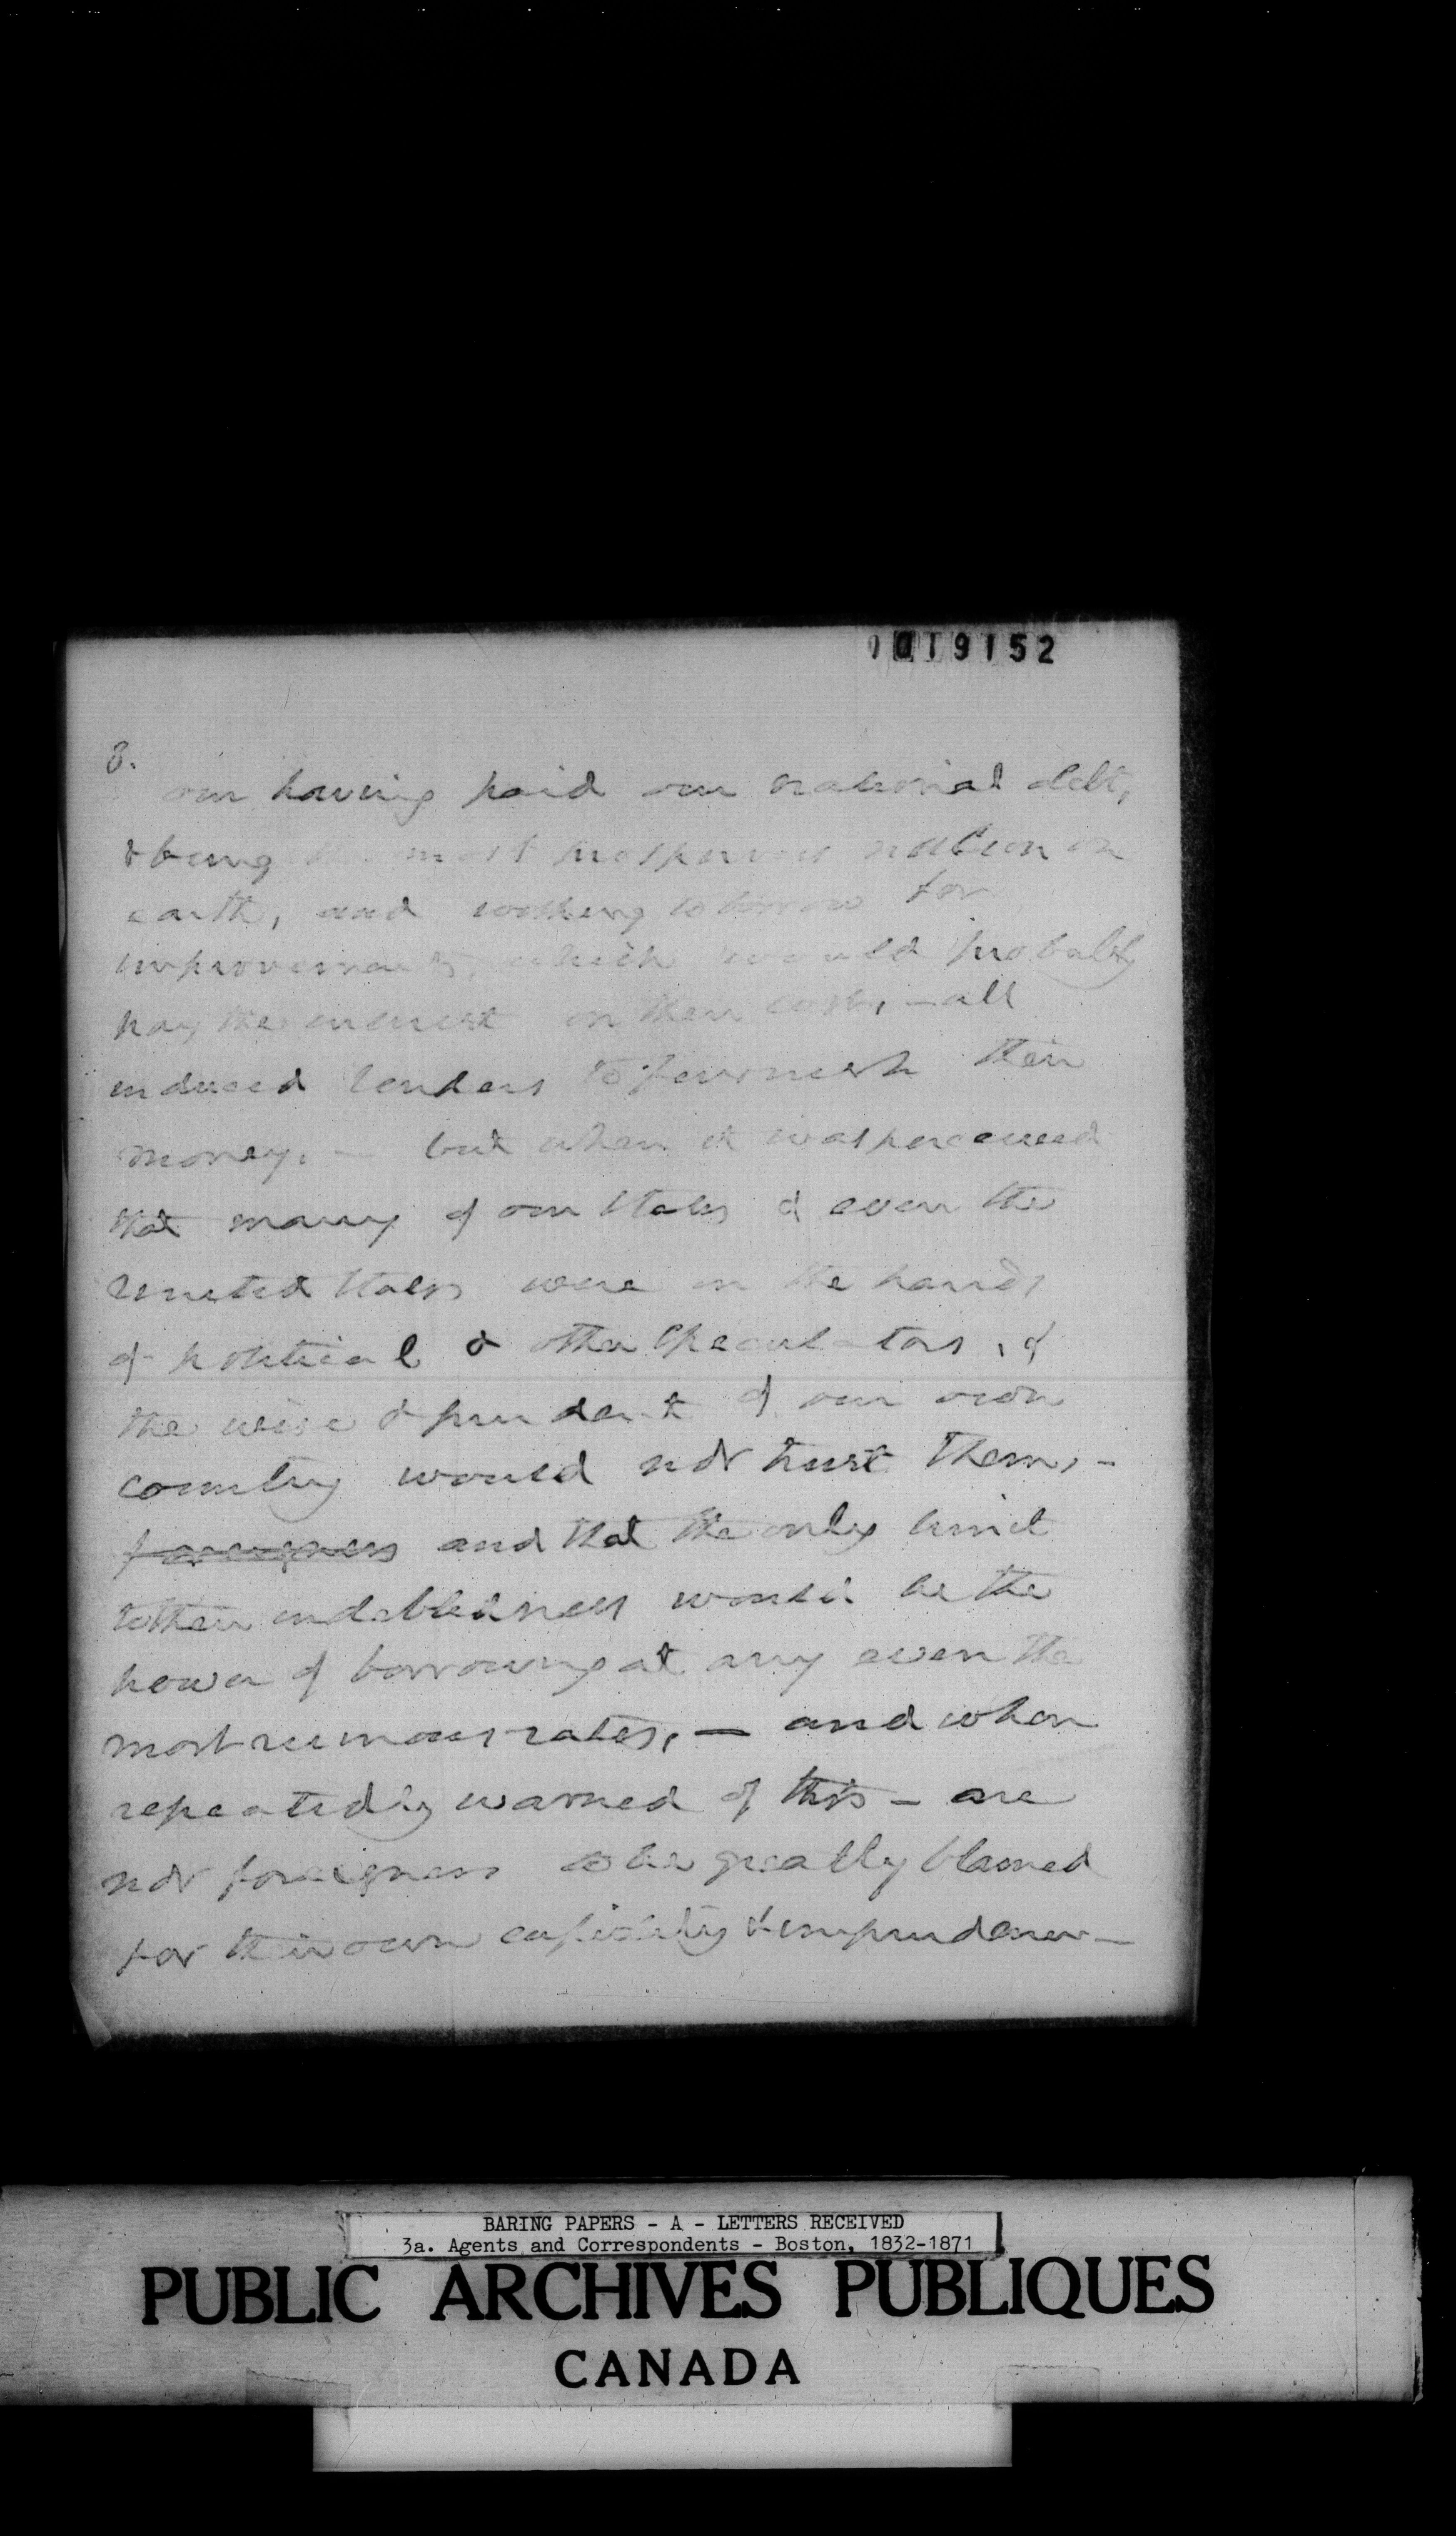 0019152
8.
our having paid our national debt,
& being the most prosperous nation on
earth, and wishing to borrow for
improvements, which would probably
pay the interest on their cost, - all
induced lenders to furnish their
money. - but when it was perceived
that many of our States & even the
United States were in the hands
of political & other speculators, &
the wise & prudent of our own
country would not trust them, -
foreigners and that the only limit
to their indebtedness would be the
power of borrowing at any even the
most ruinous rates, - and when
repeatedly warned of this - are
not foreigners to be greatly blamed
for their own cupidity & imprudence -
BARING PAPERS - A - LETTERS RECEIVED
3a. Agents and Correspondents - Boston, 1832-1871
PUBLIC ARCHIVES PUBLIQUES
CANADA